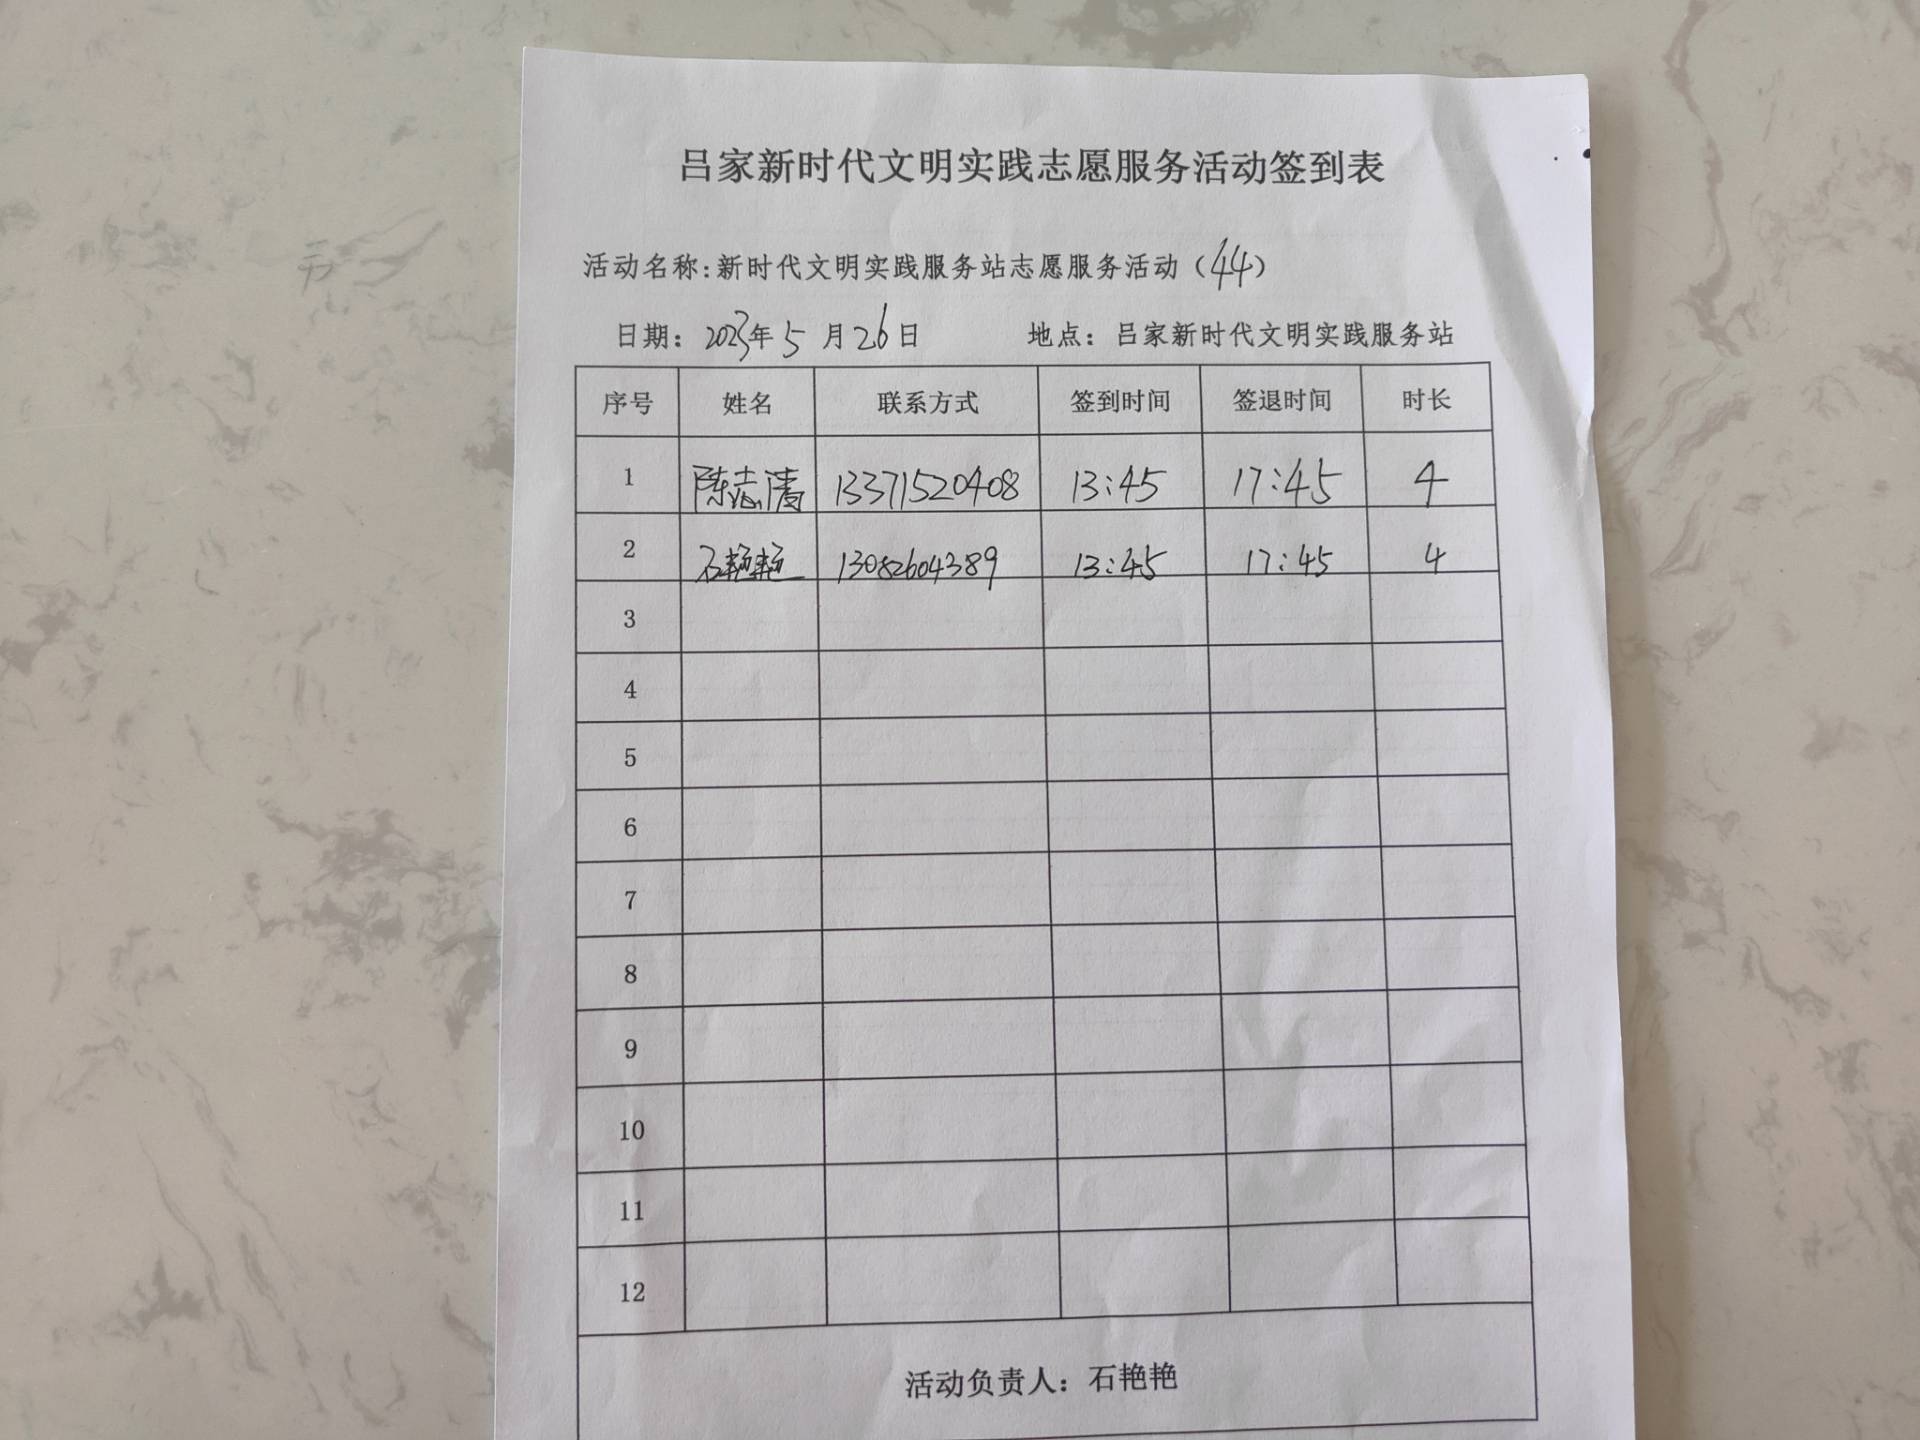 吕家新时代文明实践志愿服务活动签到表
活动名称:新时代文明实践服务站志愿服务活动（44）
日期：2023年5月26日 地点：吕家新时代文明实践服务站
序号 姓名 联系方式 签到时间 签退时间 时长
1 陈志清 13371520408 13:45 17:45 4
2 石艳艳 13082604389 13:45 17:45 4
3
4
5
6
7
8
9
10
11
12
活动负责人：石艳艳